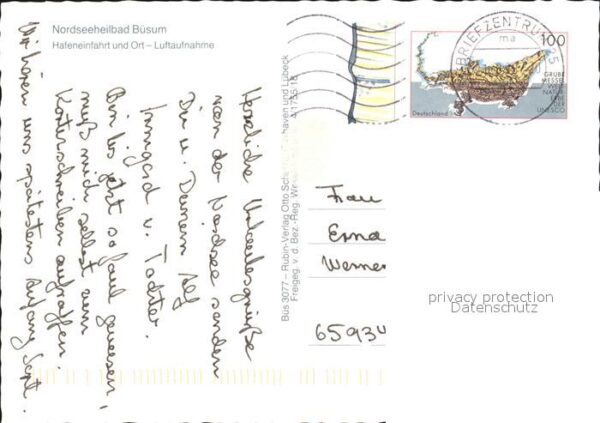 Nordseeheilbad Büsum
Hafeneinfahrt und Ort – Luftaufnahme
Herzliche Urlaubsgrüße
von der Nordsee senden
Dir u. Deinem Alf
Irmgard u. Tochter.
Bin bis jetzt so faul gewesen,
muß mich selbst zum
Kartenschreiben aufraffen.
Wir hören uns spätestens Anfang Sept.
Büs 3077 – Rubin-Verlag Otto
Freigeg. v. d. Bez.-Reg.
haven und Lübeck
BRIEFZENTRUM
ma
100
GRUBE
MESSEL
WELT
NATUR
ERBE
DER
UNESCO
Deutschland
Frau
Erna
Werner
65934
privacy protection
Datenschutz